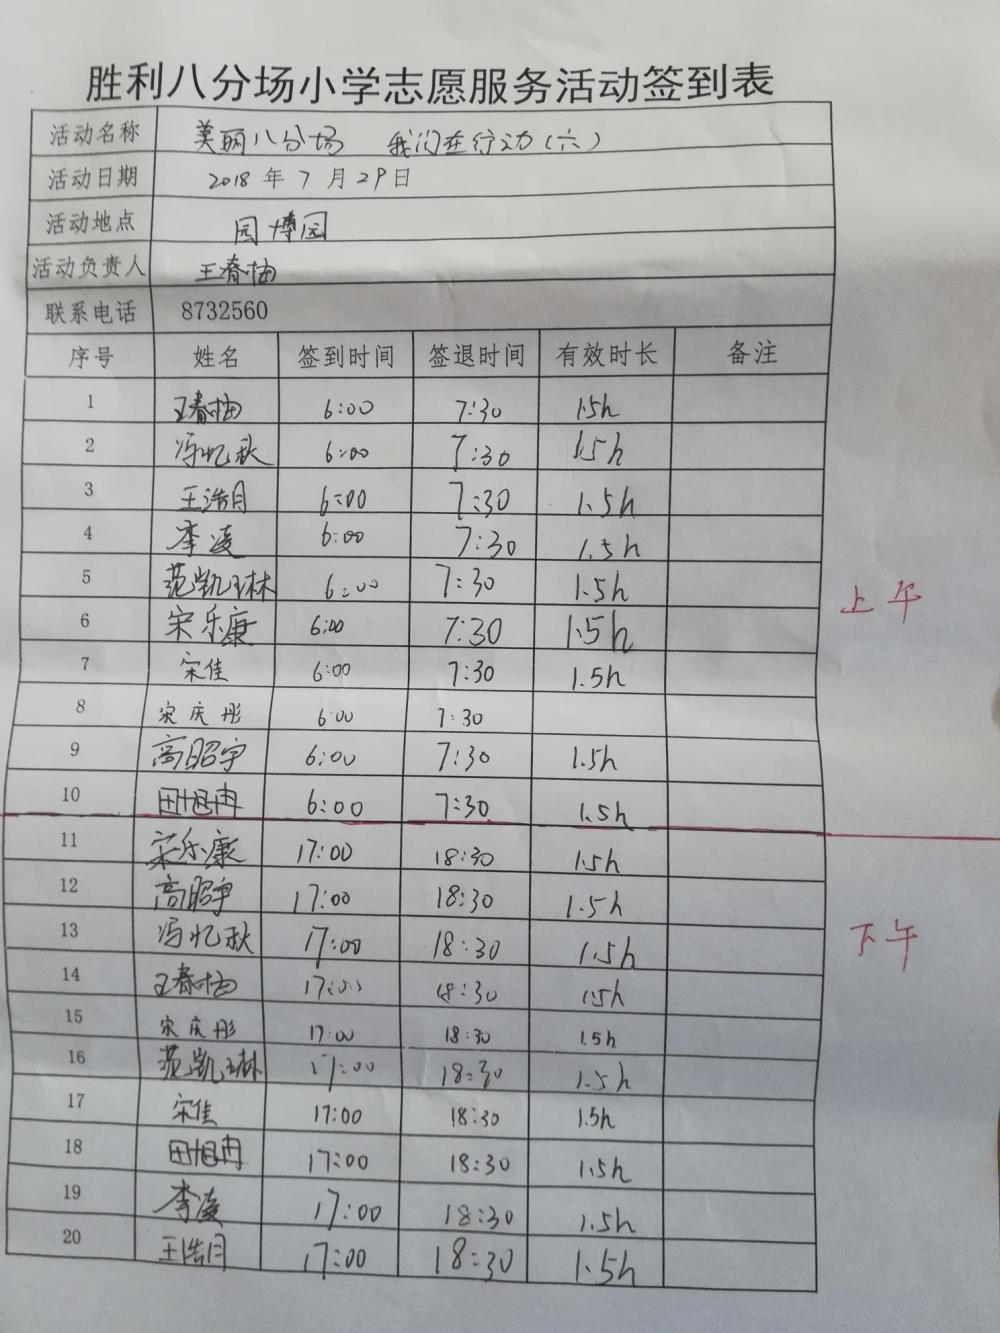 胜利八分场小学志愿服务活动签到表
活动名称 美丽八分场 我们在行动(六)
活动日期 2018年7月29日
活动地点 园博园
活动负责人 王春柚
联系电话 8732560
序号 姓名 签到时间 签退时间 有效时长 备注
1 王春柚 6:00 7:30 1.5h
2 冯忆秋 6:00 7:30 1.5h
3 王浩月 6:00 7:30 1.5h
4 李凌 6:00 7:30 1.5h
5 范凯琳 6:00 7:30 1.5h
上午
6 宋乐康 6:00 7:30 1.5h
7 宋佳 6:00 7:30 1.5h
8 宋庆彤 6:00 7:30
9 高昭宇 6:00 7:30 1.5h
10 田旭冉 6:00 7:30 1.5h
11 宋乐康 17:00 18:30 1.5h
12 高昭宇 17:00 18:30 1.5h
13 冯忆秋 17:00 18:30 1.5h
下午
14 王春柚 17:00 18:30 1.5h
15 宋庆彤 17:00 18:30 1.5h
16 范凯琳 17:00 18:30 1.5h
17 宋佳 17:00 18:30 1.5h
18 田旭冉 17:00 18:30 1.5h
19 李凌 17:00 18:30 1.5h
20 王浩月 17:00 18:30 1.5h